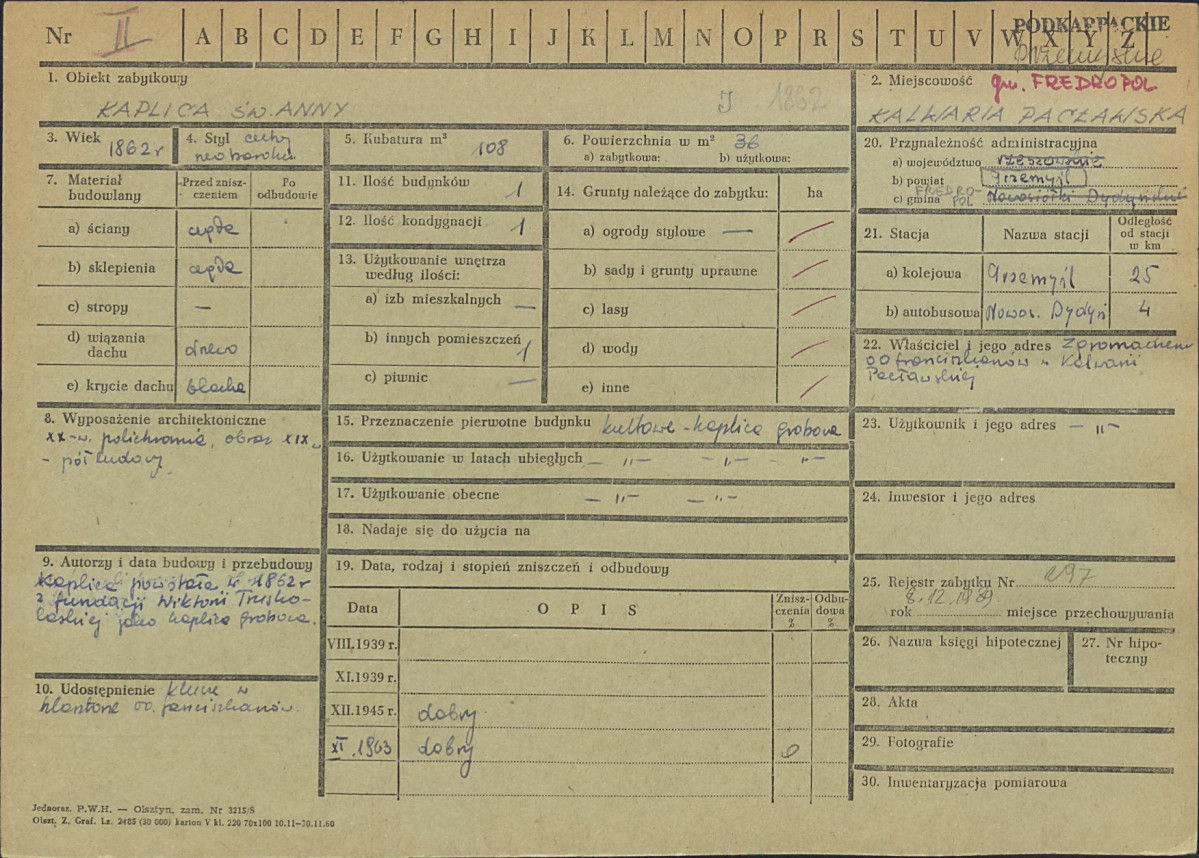 Nr II A B C D E F G H I J K L M N O P R S T U V W X Y Z
PODKARPACKIE
przemyskie
1. Obiekt zabytkowy
KAPLICA ŚW. ANNY
1862
2. Miejscowość gm. FREDROPOL
KALWARIA PACŁAWSKA
3. Wiek 1862 r
4. Styl cechy
neobaroku
5. Kubatura m³ 108
6. Powierzchnia w m² 36
a) zabytkowa: b) użytkowa:
7. Materiał budowlany
Przed zniszczeniem
Po odbudowie
a) ściany cegła
b) sklepienia cegła
c) stropy —
d) wiązania dachu drewo
e) krycie dachu blacha
8. Wyposażenie architektoniczne
XX-w. polichromia, obraz XIX w
- pół ludowy
9. Autorzy i data budowy i przebudowy
Kaplica powstała w 1862 r
z fundacji Wiktorii Trusko-
laskiej jako kaplica grobowa.
10. Udostępnienie klucze w
klasztorze oo. franciszkanów.
11. Ilość budynków 1
12. Ilość kondygnacji 1
13. Użytkowanie wnętrza według ilości:
a) izb mieszkalnych —
b) innych pomieszczeń 1
c) piwnic —
14. Grunty należące do zabytku: ha
a) ogrody stylowe —
b) sady i grunty uprawne
c) lasy
d) wody
e) inne
15. Przeznaczenie pierwotne budynku kultowe - kaplica grobowa
16. Użytkowanie w latach ubiegłych — „ — — „ — „ —
17. Użytkowanie obecne — „ — — „ —
18. Nadaje się do użycia na
19. Data, rodzaj i stopień zniszczeń i odbudowy
Data OPIS Zniszczenia % Odbudowa %
VIII.1939 r.
XI.1939 r.
XII.1945 r. dobry
XI.1963 dobry 0
20. Przynależność administracyjna
a) województwo rzeszowskie
b) powiat Przemyśl
c) gmina FREDROPOL Nowosiółki Dydyńskie
21. Stacja Nazwa stacji Odległość od stacji w km
a) kolejowa Przemyśl 25
b) autobusowa Nowos. Dydyń 4
22. Właściciel i jego adres Zgromadzenie
oo franciszkanów w Kalwarii
Pacławskiej
23. Użytkownik i jego adres — „ —
24. Inwestor i jego adres
25. Rejestr zabytku Nr 297
rok 8.12.1989 miejsce przechowywania
26. Nazwa księgi hipotecznej
27. Nr hipoteczny
28. Akta
29. Fotografie
30. Inwentaryzacja pomiarowa
Jednoraz. P.W.H. — Olsztyn, zam. Nr 3215/S
Olszt. Z. Graf. Lz. 2485 (30 000) karton V kl. 220 70x100 10.11-30.11.60